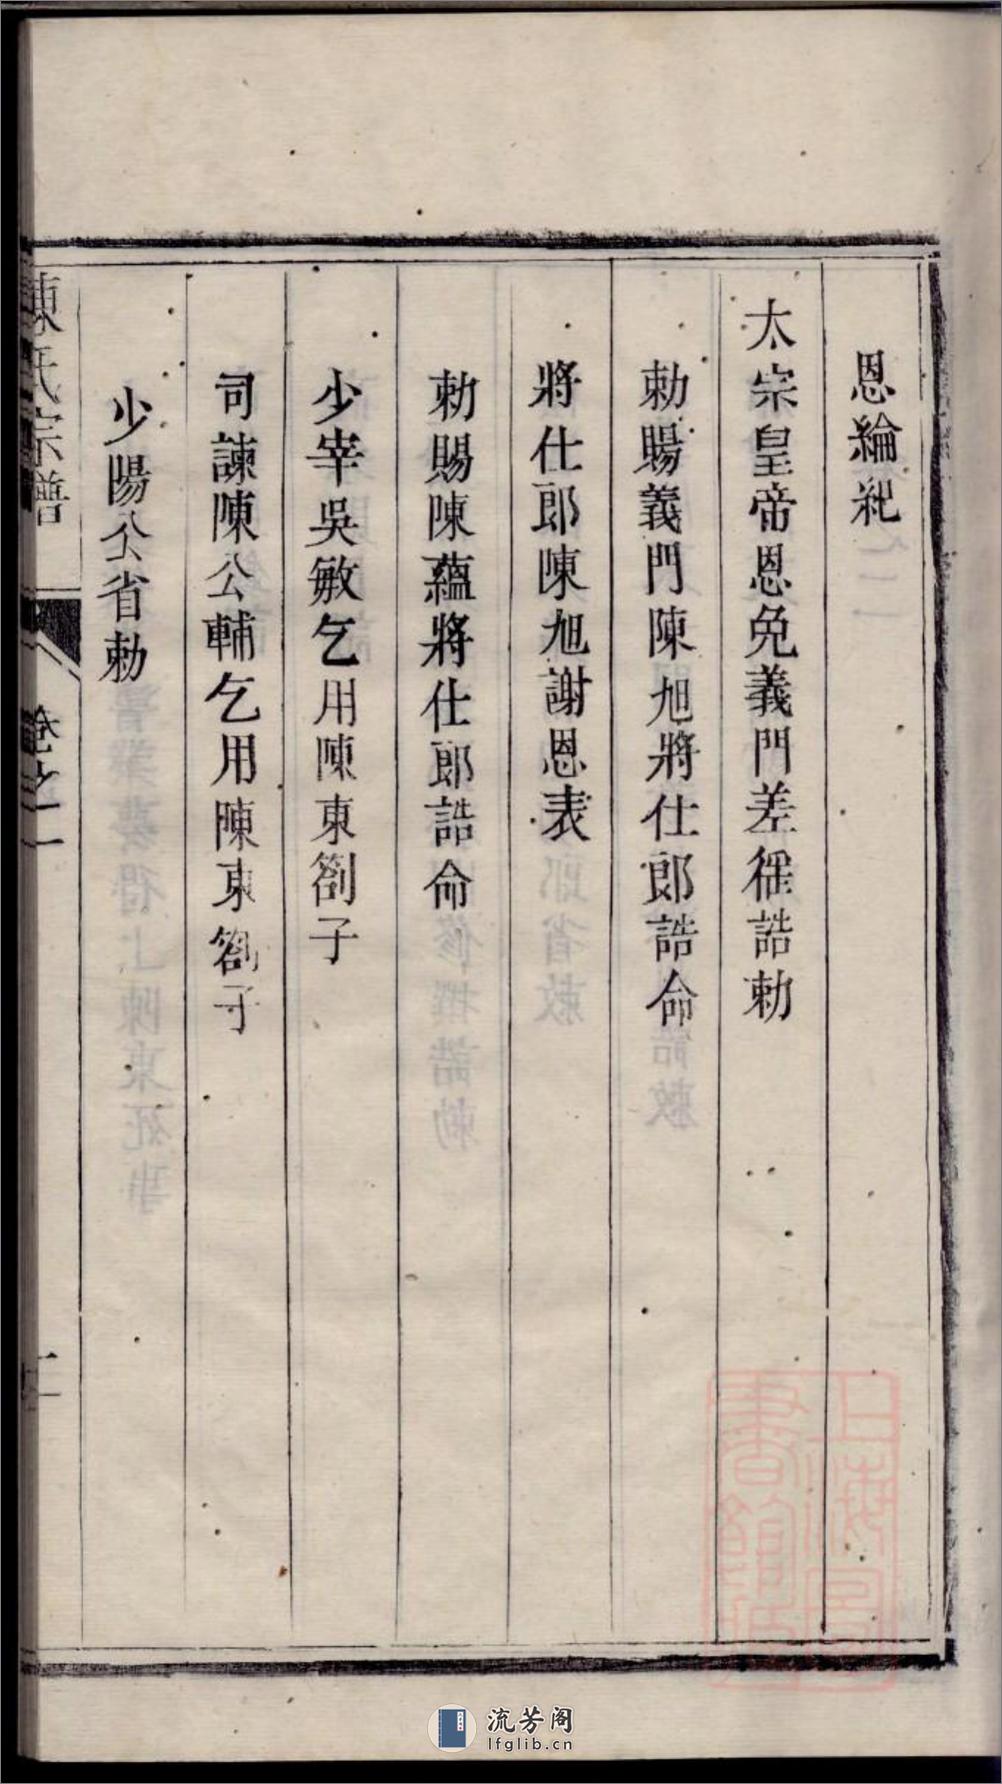 恩綸紀
太宗皇帝恩免義門差徭誥勅
勅賜義門陳旭將仕郎誥命
將仕郎陳旭謝恩表
勅賜陳蘊將仕郎誥命
少宰吳敏乞用陳東劄子
司諫陳公輔乞用陳東劄子
少陽公省勅
陳氏宗譜
卷之一
上海圖書館藏
流芳阁
lfglib.cn